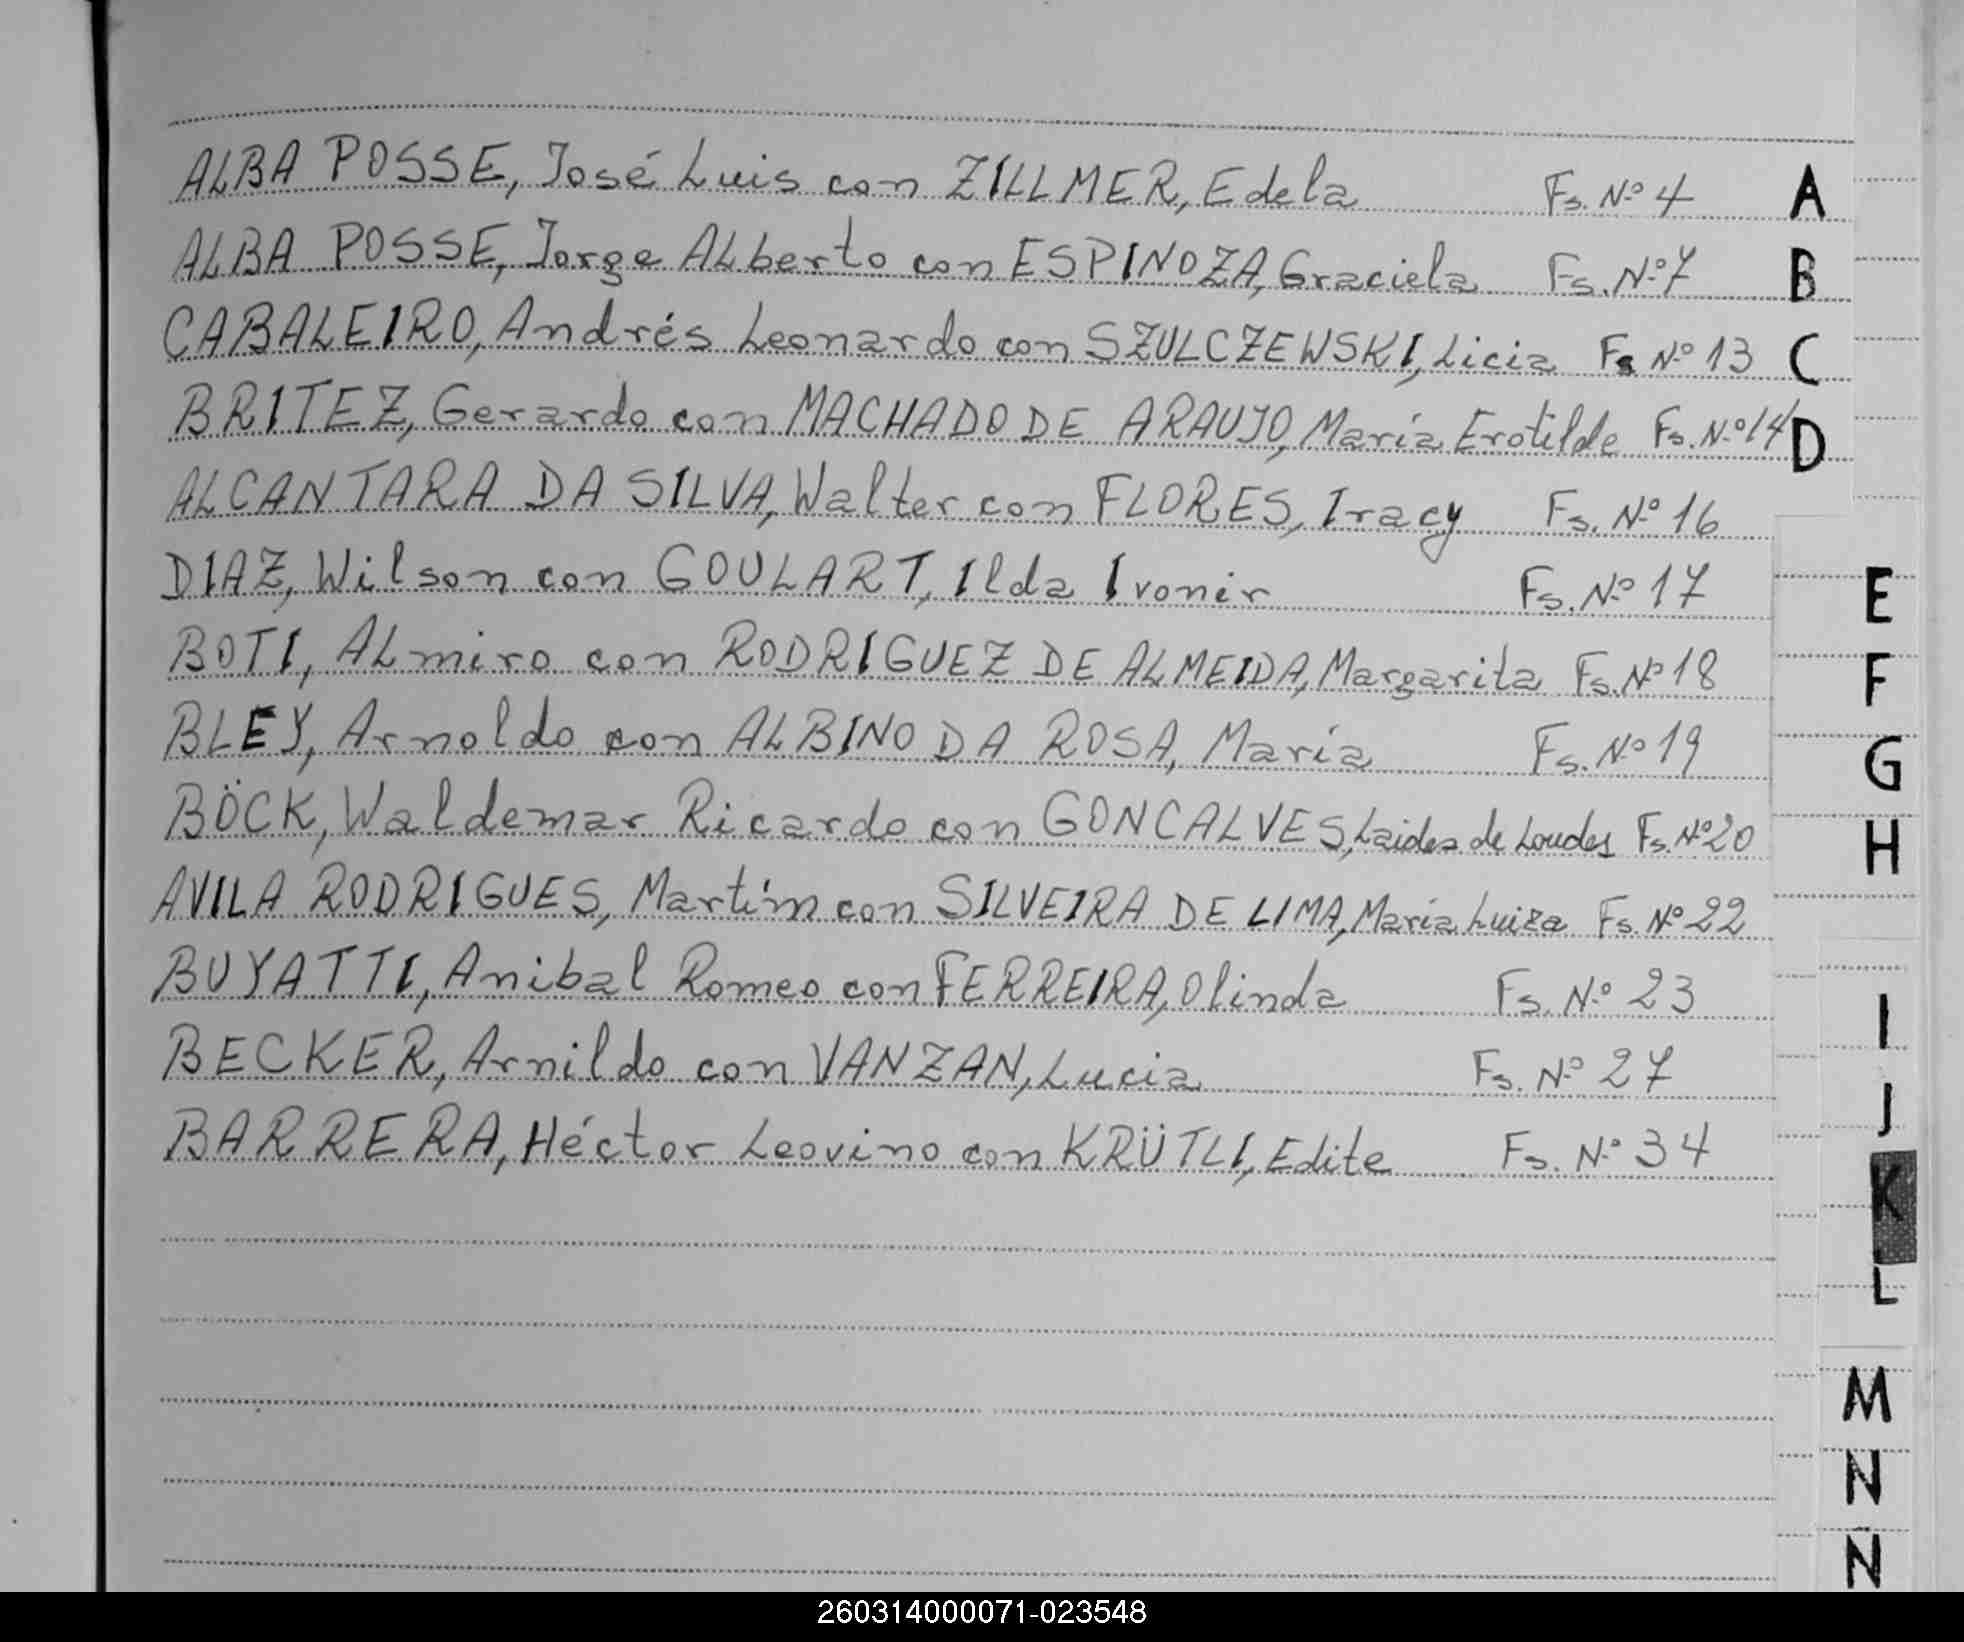 ALBA POSSE, José Luis con ZILLMER, Edela Fs. Nº 4
ALBA POSSE, Jorge ALberto con ESPINOZA, Graciela Fs. Nº 7
CABALEIRO, Andrés Leonardo con SZULCZEWSKI, Licia Fs Nº 13
BRITEZ, Gerardo con MACHADO DE ARAUJO, María Erotilde Fs. Nº 14
ALCANTARA DA SILVA, Walter con FLORES, Iracy Fs. Nº 16
DIAZ, Wilson con GOULART, Ilda Ivonir Fs. Nº 17
BOTI, ALmiro con RODRIGUEZ DE ALMEIDA, Margarita Fs. Nº 18
BLEY, Arnoldo con ALBINO DA ROSA, María Fs. Nº 19
BÖCK, Waldemar Ricardo con GONCALVES, Laides de Loudes Fs. Nº 20
AVILA RODRIGUES, Martím con SILVEIRA DE LIMA, María Luiza Fs. Nº 22
BUYATTI, Anibal Romeo con FERREIRA, Olinda Fs. Nº 23
BECKER, Arnildo con VANZAN, Lucia Fs. Nº 27
BARRERA, Héctor Leovino con KRÜTLI, Edite Fs. Nº 34
A
B
C
D
E
F
G
H
I
J
K
L
M
N
Ñ
260314000071-023548